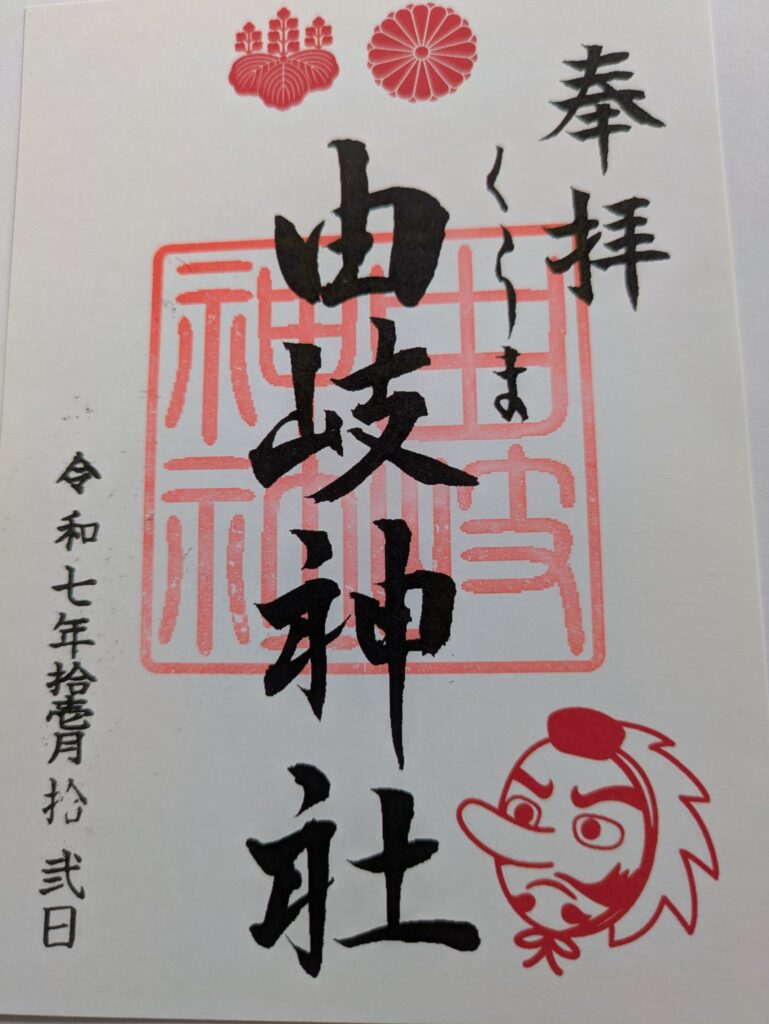 奉拝
くらま
由岐神社
由岐神社
令和七年拾壱月拾弐日